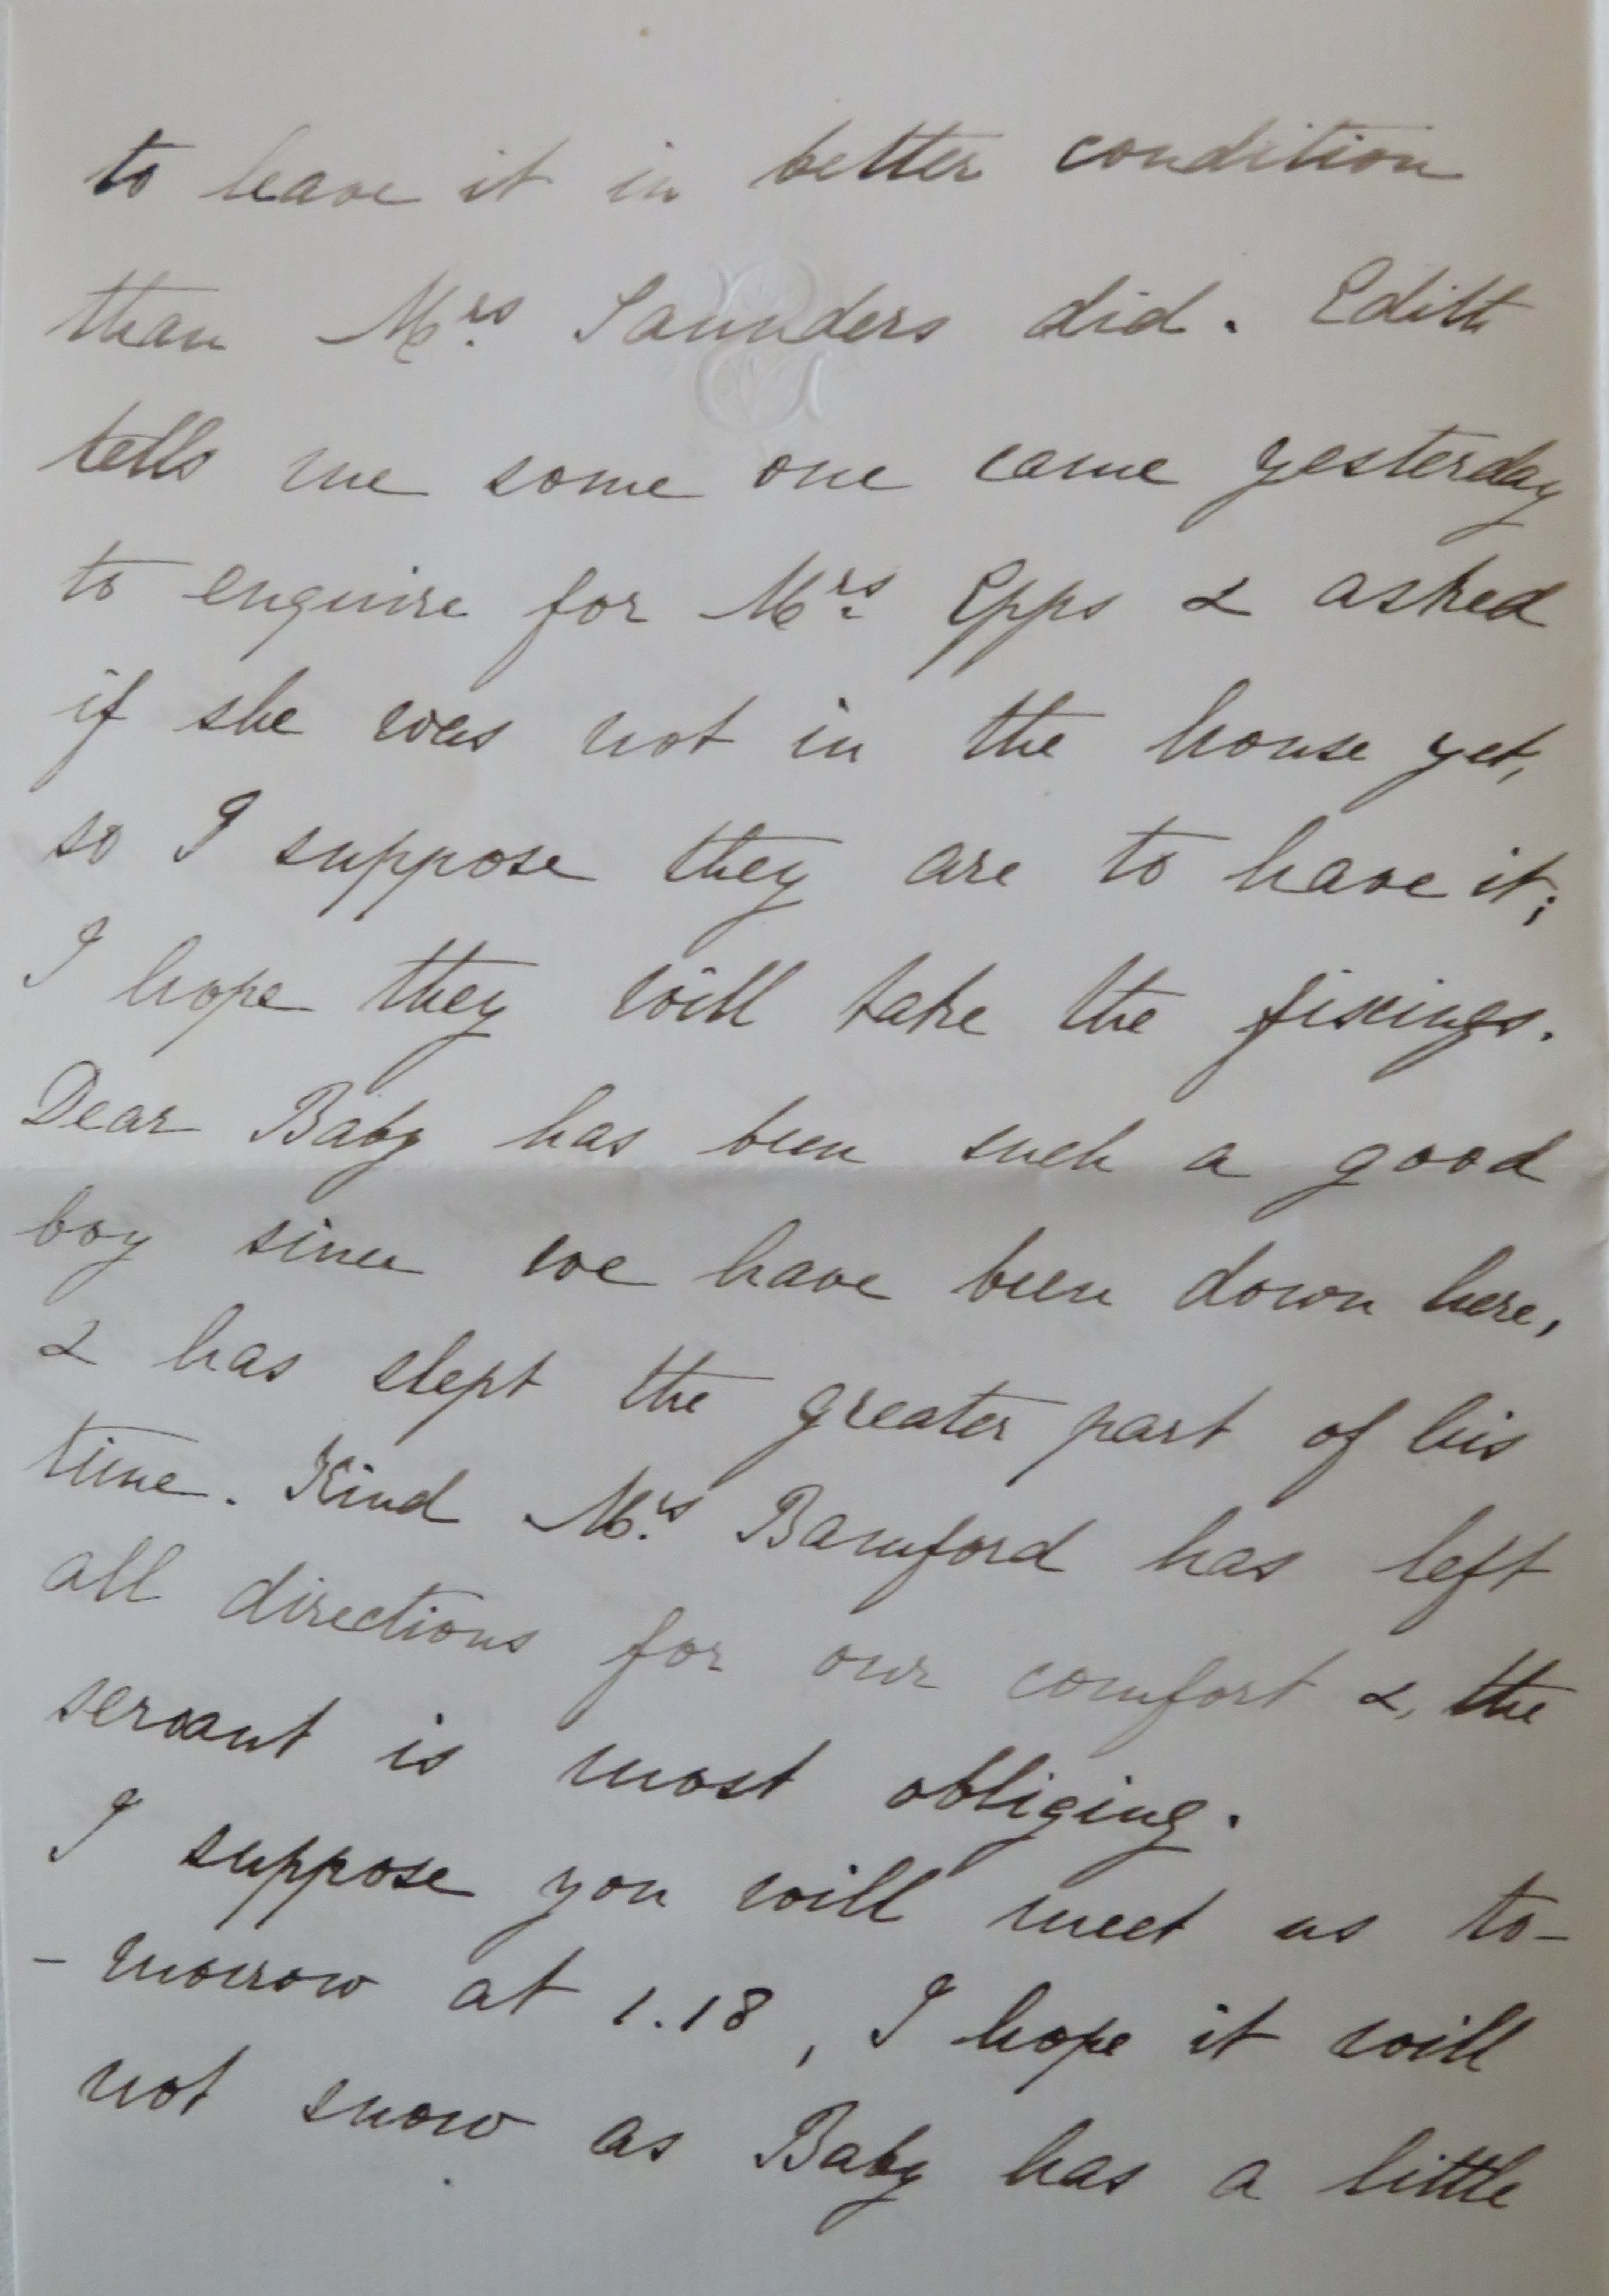 to leave it in better condition
than Mrs. Saunders did. Edith
tells me some one came yesterday
to enquire for Mrs. Epps & asked
if she was not in the house yet,
so I suppose they are to have it;
I hope they will take the fixings.
Dear Baby has been such a good
boy since we have been down here,
& has slept the greater part of his
time. Kind Mrs. Bamford has left
all directions for our comfort &, the
servant is most obliging.
I suppose you will meet us to-
-morrow at 1.18, I hope it will
not snow as Baby has a little